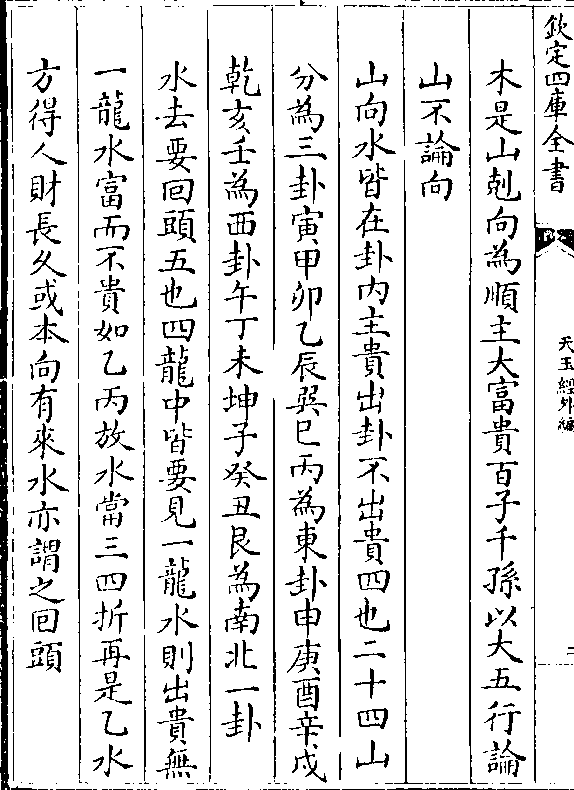 欽定四庫全書
天玉經外編
二
木是山剋向為順主大富貴百子千孫以大五行論
山不論向
山向水皆在卦内主貴出卦不出貴四也二十四山
分為三卦寅甲卯乙辰巽巳丙為東卦申庚酉辛戌
乾亥壬為西卦午丁未坤子癸丑艮為南北一卦
水去要回頭五也四龍中皆要見一龍水則出貴無
一龍水富而不貴如乙丙放水當三四折再是乙水
方得人財長久或本向有來水亦謂之回頭